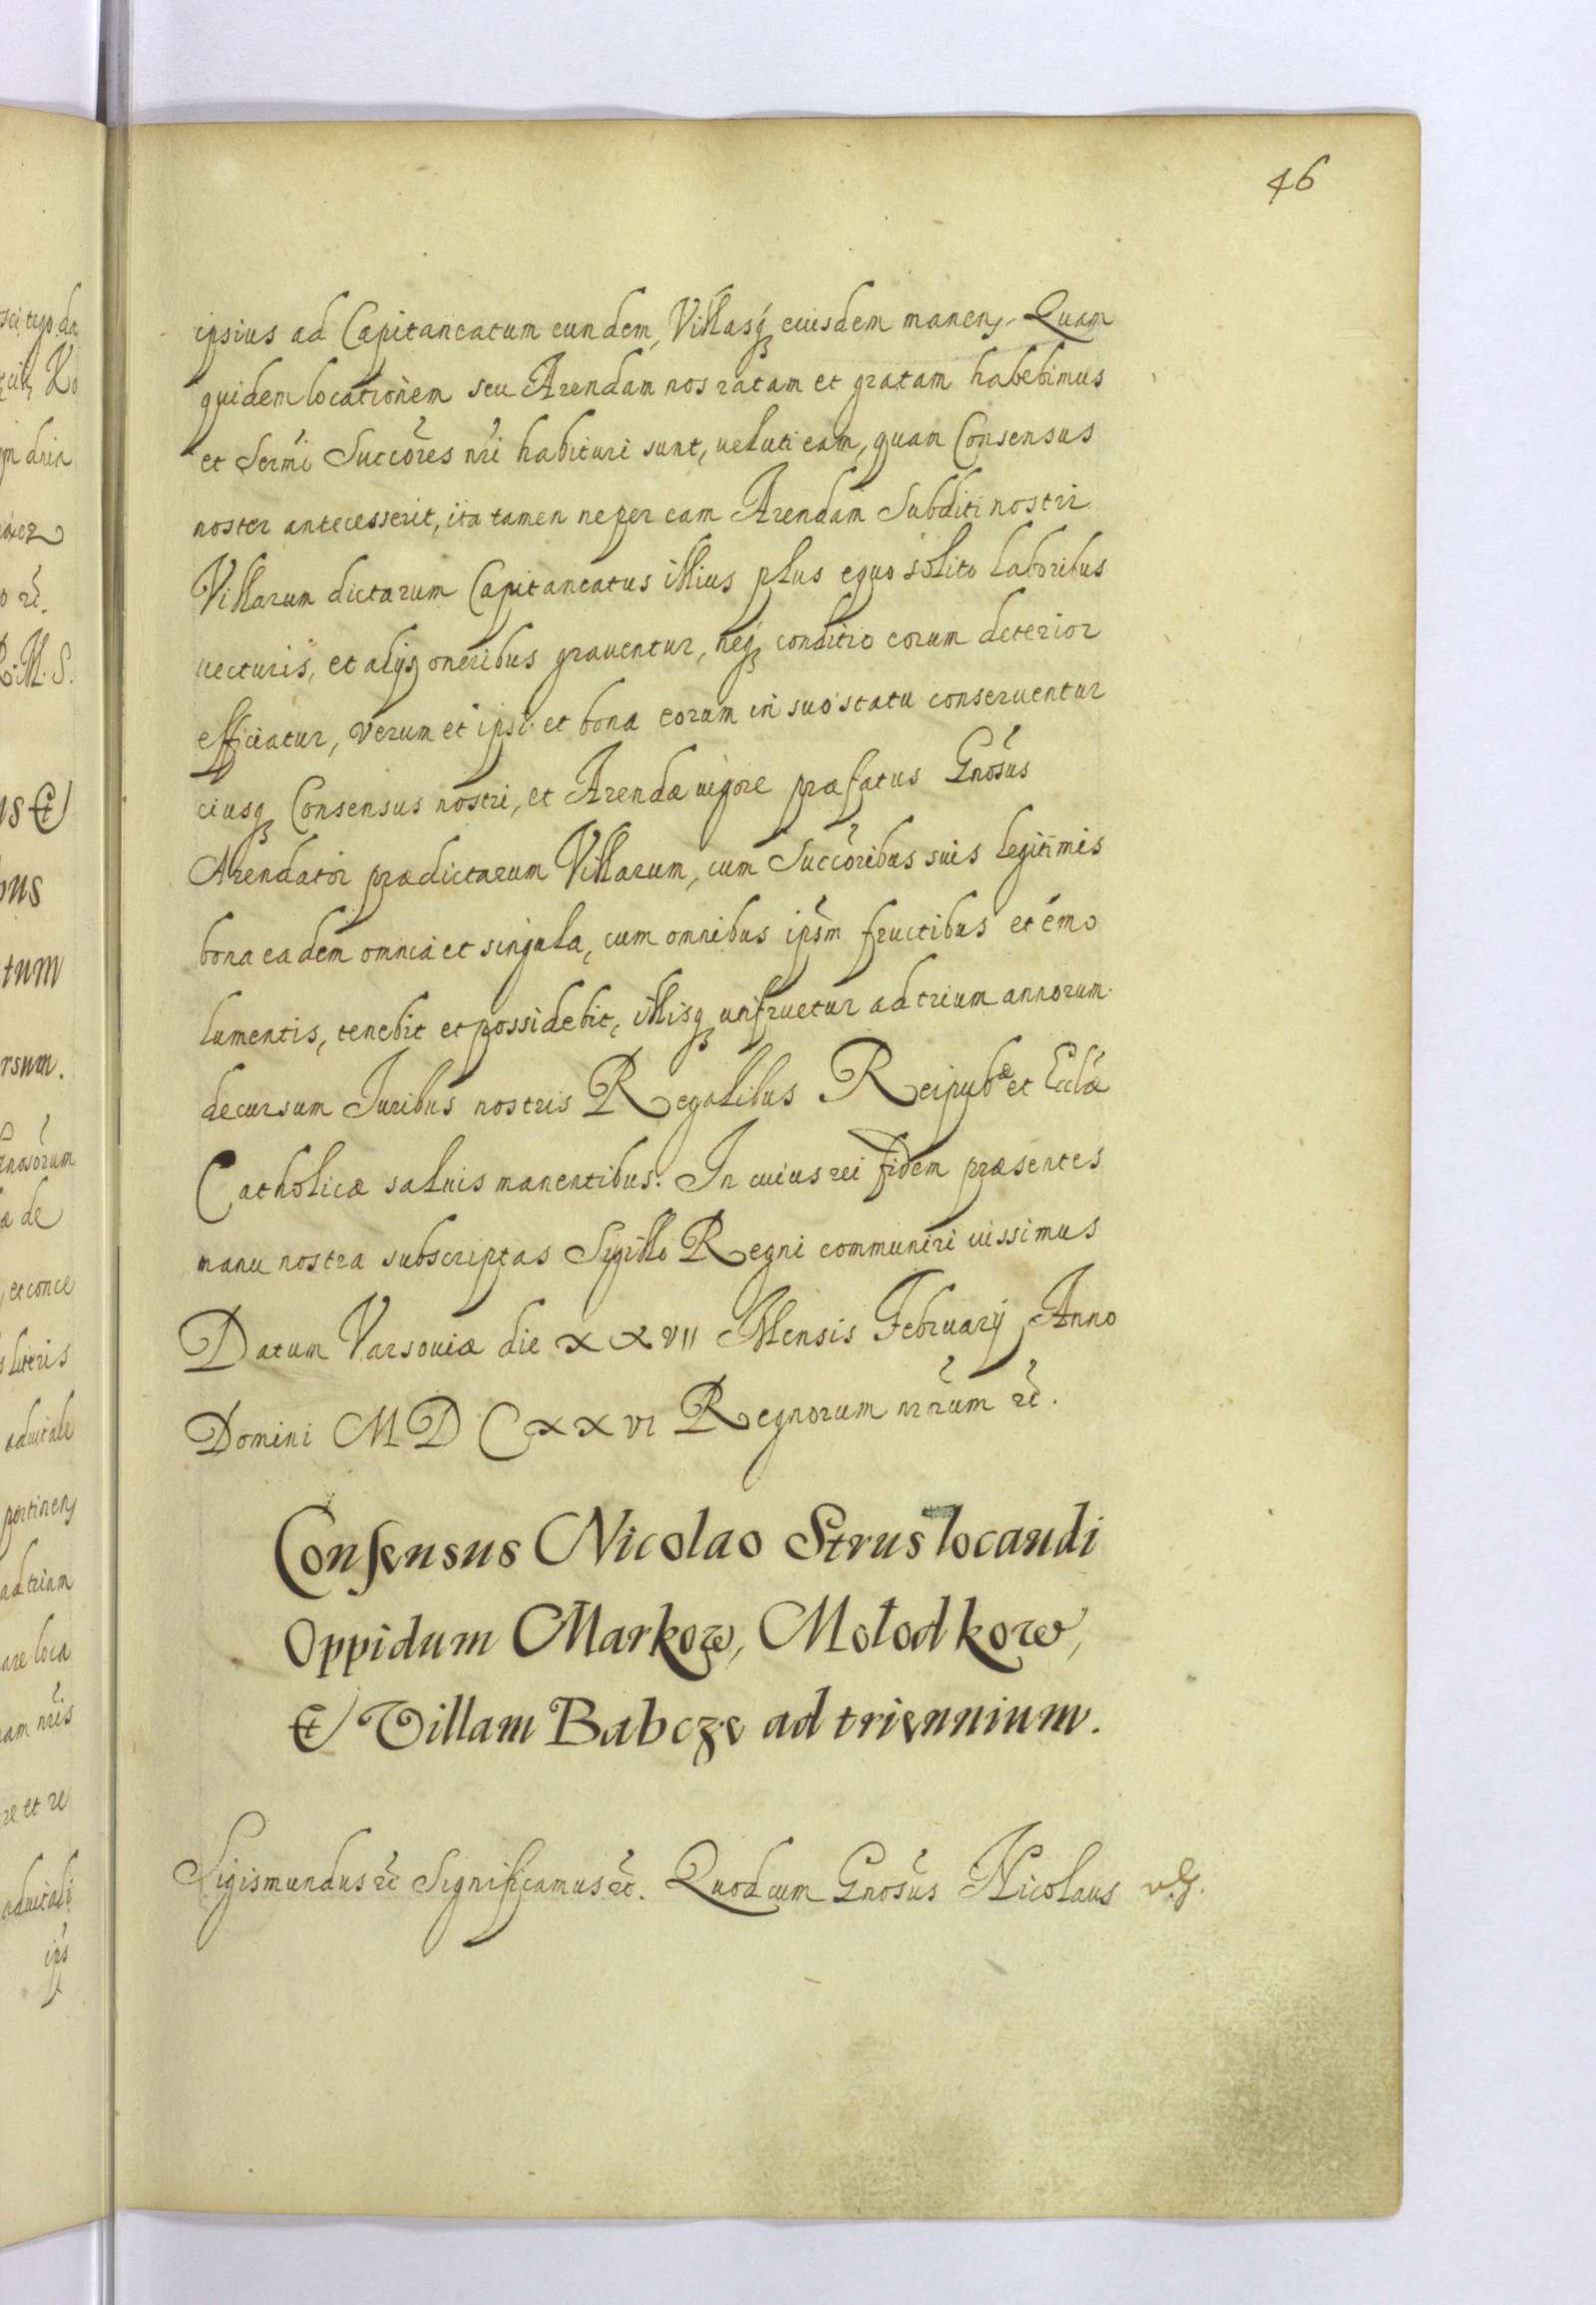 46
ipsius ad Capitaneatum eundem, Villasq; euisdem manen, Quam
quidem locationem seu Arendam nos ratam et gratam habebimus
et Sermi Succores nri habituri sunt, ueluti eam, quam Consensus
noster antecesserit, ita tamen ne per eam Arendam Subditi nostri
Villarum dictarum Capitaneatus illius plus equo solito laboribus
uecturis, et alysq; oneribus grauentur, neq; conditio eorum deterior
efficiatur, verum et ipsi et bona eorum in suo statu conseruentur
eiusq; Consensus nostri, et Arendæ uigore præfatus Gnosus
Arendator prædictarum Villarum, cum Succoribus suis legitimis
bona eadem omnia et singula, cum omnibus ipsm fructibus et emo
lumentis, tenebit et possidebit, illisq; utifruetur ad trium annorum
decursum Iuribus nostris Regalibus Reipubæ et Ecclæ
Catholicæ saluis manentibus. In cuius rei fidem præsentes
manu nostra subscriptas Sigillo Regni communiri iussimus
Datum Varsouiæ die XXVII Mensis February Anno
Domini MDCXXVI Regnorum nrorum etc.
Consensus Nicolao Strus locandi
Oppidum Markow, Mołodkow,
Et Villam Babcze ad triennium.
Sigismundus etc Significamus etc. Quod cum Gnosus Nicolaus